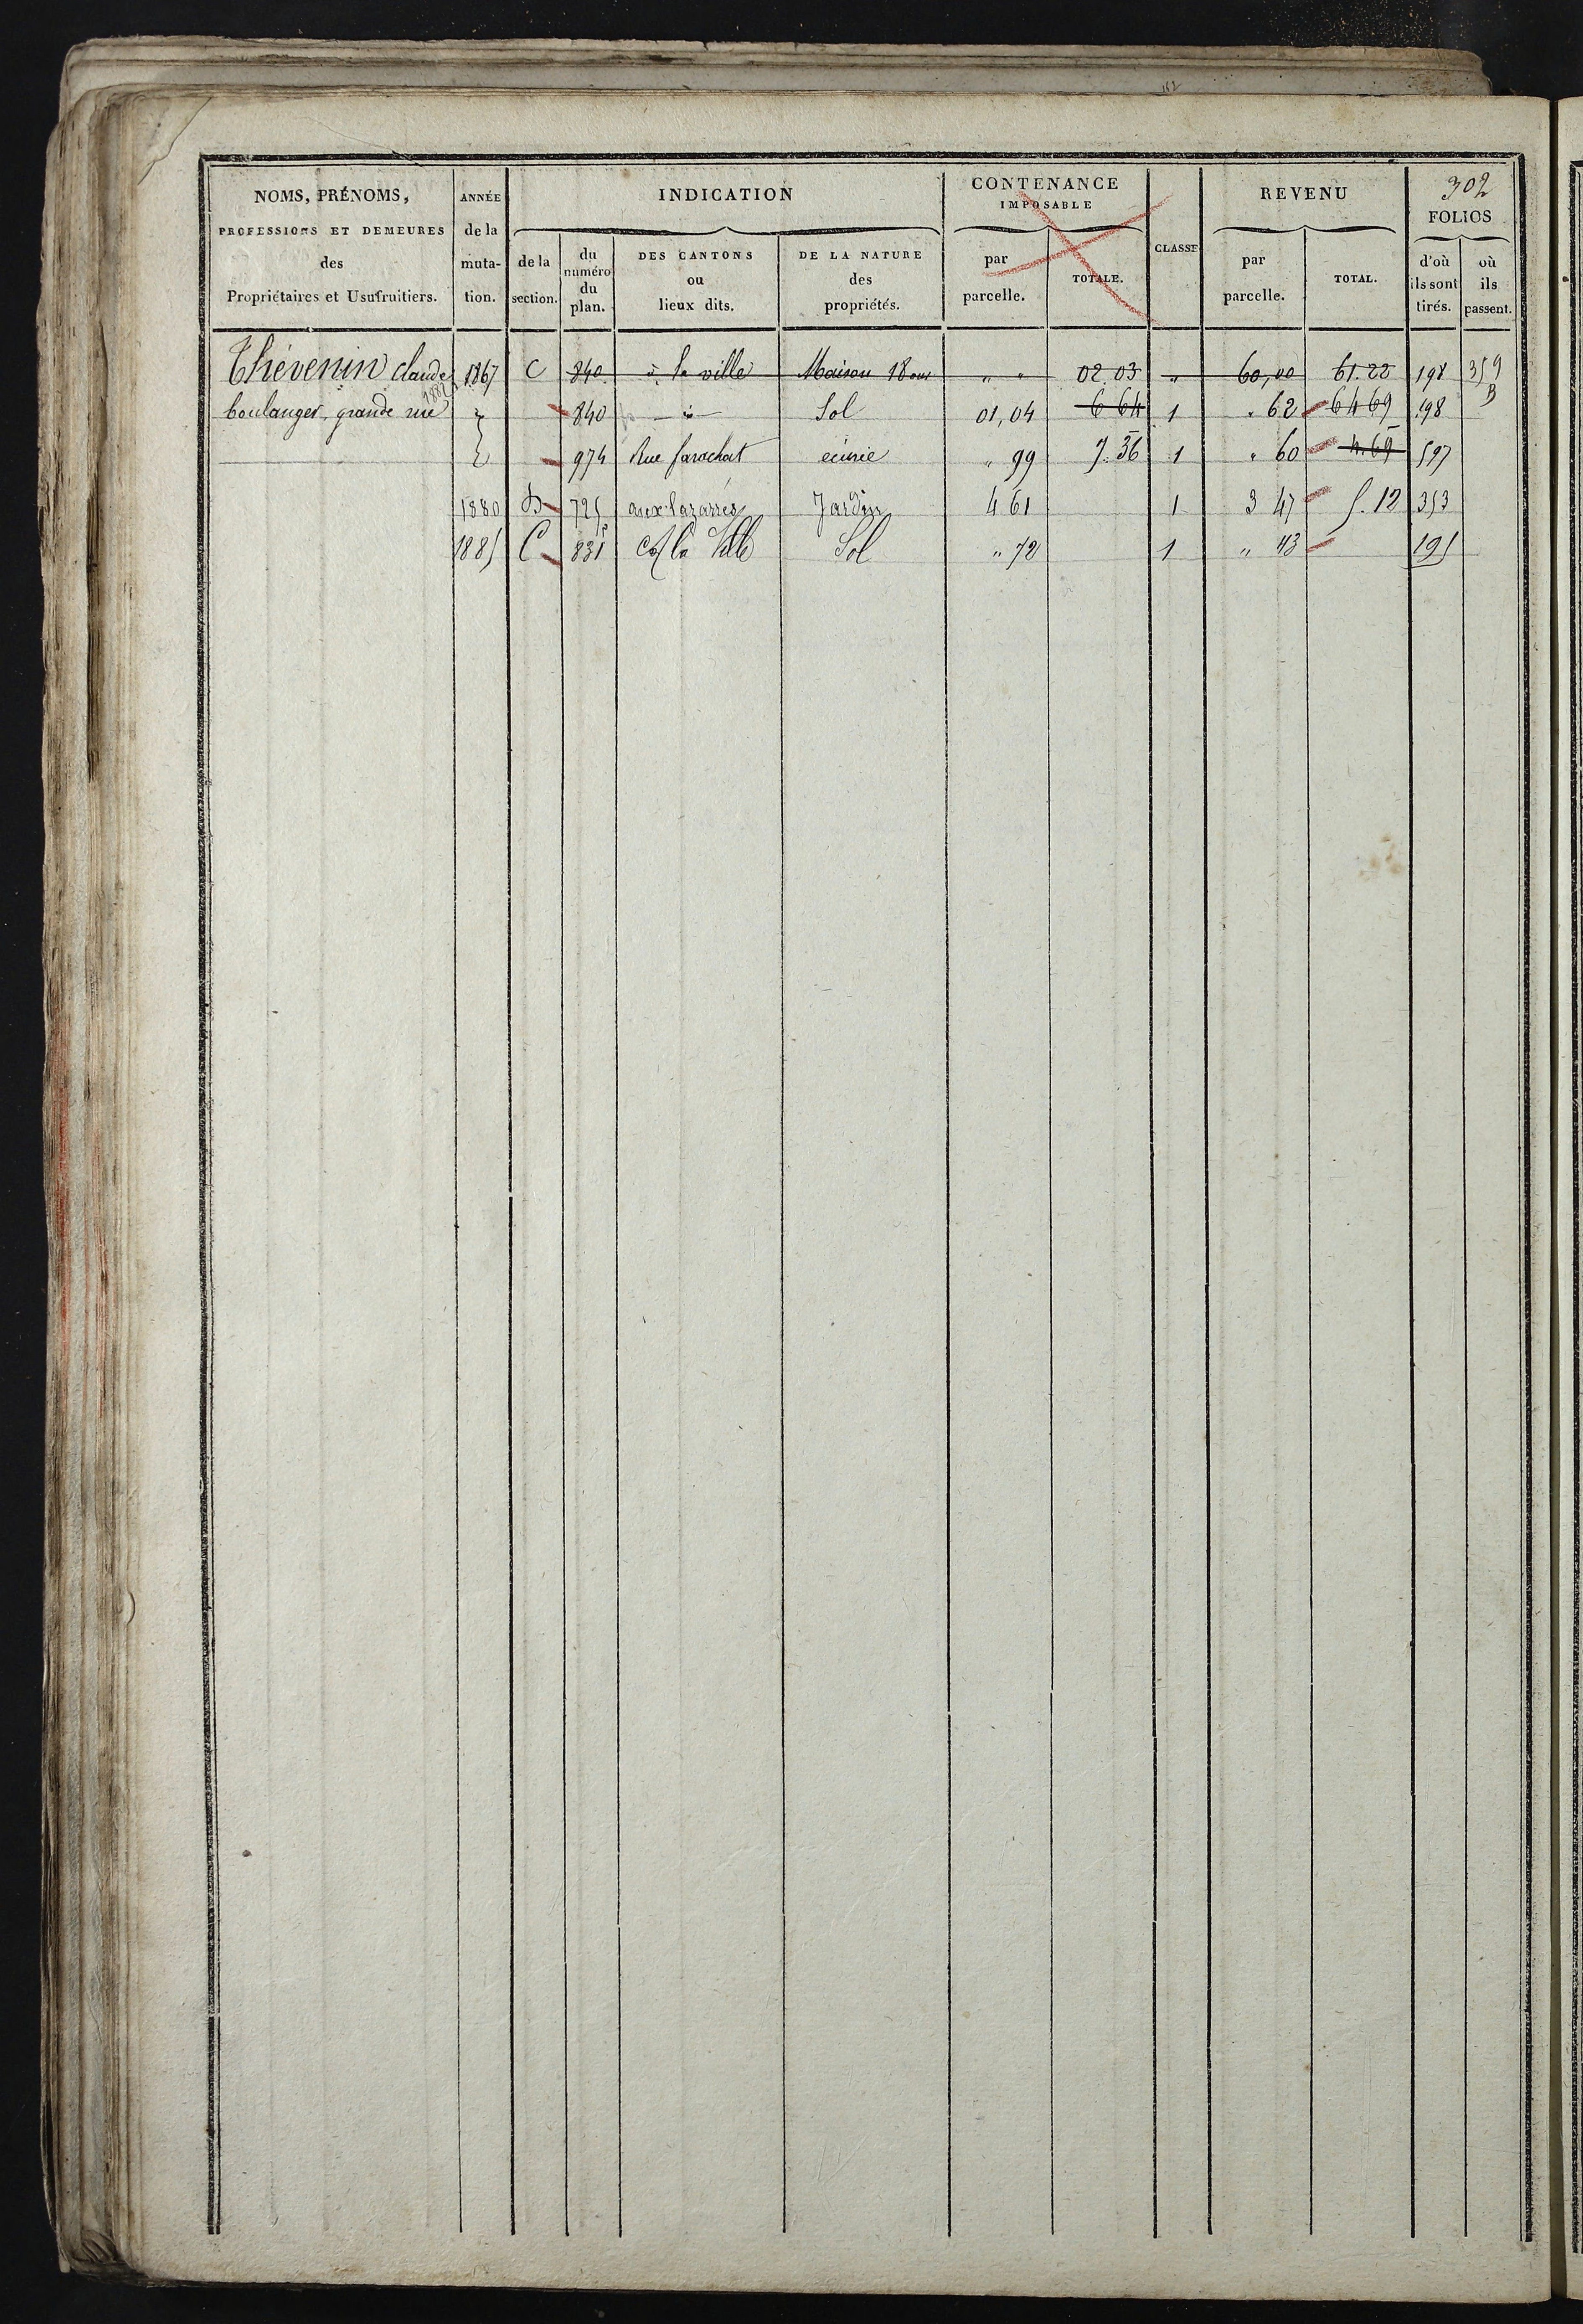 112
NOMS, PRÉNOMS,
PROFESSIONS ET DEMEURES
des
Propriétaires et Usufruitiers.
ANNÉE
de la
muta-
tion.
INDICATION
de la
section.
du
numéro
du
plan.
DES CANTONS
ou
lieux dits.
DE LA NATURE
des
propriétés.
CONTENANCE
IMPOSABLE
par
parcelle.
TOTALE.
CLASSE
REVENU
par
parcelle.
TOTAL.
302
FOLIOS
d'où
ils sont
tirés.
où
ils
passent.
Thévenin claude 1867 C 840 à la ville Maison 18 ouv " " 02.03 " 60,00 61.22 198 359
boulanger, grande rue 840 — Sol 01,04 6 64 1 " 62 64 69 198
974 Rue ecurie " 99 7.36 1 " 60 4.69 597
1880 725 aux lazarres Jardin 4 61 1 3 47 5.12 353
1885 C 831 la Ville Sol " 72 1 " 43 195